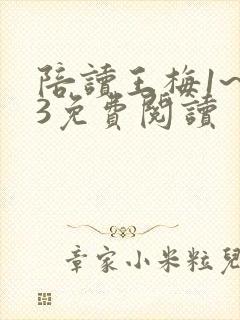 陪讀王梅1~
3免費閱讀
章家小米粒兒